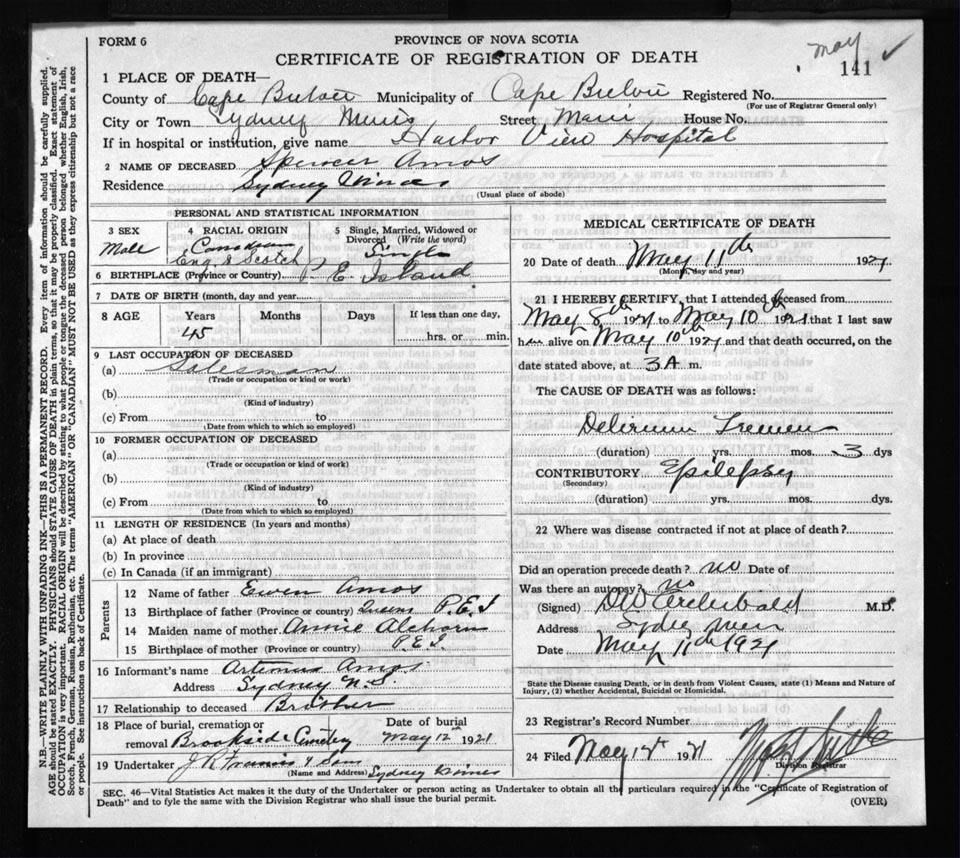 May ✓
FORM 6 PROVINCE OF NOVA SCOTIA 141
CERTIFICATE OF REGISTRATION OF DEATH
1 PLACE OF DEATH—
County of Cape Breton Municipality of Cape Breton Registered No.
(For use of Registrar General only)
City or Town Sydney Mines Street Main House No.
If in hospital or institution, give name Harbor View Hospital
2 NAME OF DECEASED Spencer Amos
Residence Sydney Mines
(Usual place of abode)
PERSONAL AND STATISTICAL INFORMATION
3 SEX 4 RACIAL ORIGIN 5 Single, Married, Widowed or Divorced (Write the word)
Male Canadian Eng & Scotch Single
6 BIRTHPLACE (Province or Country) P E Island
7 DATE OF BIRTH (month, day and year)
8 AGE Years Months Days If less than one day,
45 hrs. or min.
9 LAST OCCUPATION OF DECEASED
(a) Salesman
(Trade or occupation or kind or work)
(b)
(Kind of industry)
(c) From to
(Date from which to which so employed)
10 FORMER OCCUPATION OF DECEASED
(a)
(Trade or occupation or kind of work)
(b)
(Kind of industry)
(c) From to
(Date from which to which so employed)
11 LENGTH OF RESIDENCE (In years and months)
(a) At place of death
(b) In province
(c) In Canada (if an immigrant)
Parents
12 Name of father Ewen Amos
13 Birthplace of father (Province or country) Queens P.E.I
14 Maiden name of mother Annie Alchorn
15 Birthplace of mother (Province or country) P.E.I.
16 Informant's name Artemus Amos
Address Sydney N.S.
17 Relationship to deceased Brother
18 Place of burial, cremation or removal Brookside Cemetery Date of burial May 12th 1921
19 Undertaker J. R. Francis & Sons
(Name and Address) Sydney Mines
MEDICAL CERTIFICATE OF DEATH
20 Date of death May 11th 1921
(Month, day and year)
21 I HEREBY CERTIFY, that I attended deceased from
May 8th 1921 to May 10th 1921 that I last saw
him alive on May 10th 1921 and that death occurred, on the
date stated above, at 3 A m.
The CAUSE OF DEATH was as follows:
Delirium Tremens
(duration) yrs. mos. 3 dys
CONTRIBUTORY Epilepsy
(Secondary)
(duration) yrs. mos. dys.
22 Where was disease contracted if not at place of death?
Did an operation precede death? no Date of
Was there an autopsy? no
(Signed) DW Archibald M.D.
Address
Date May 11th 1921
State the Disease causing Death, or in death from Violent Causes, state (1) Means and Nature of
Injury, (2) whether Accidental, Suicidal or Homicidal.
23 Registrar's Record Number
24 Filed May 12 1921
Division Registrar
SEC. 46—Vital Statistics Act makes it the duty of the Undertaker or person acting as Undertaker to obtain all the particulars required in the "Certificate of Registration of
Death" and to fyle the same with the Division Registrar who shall issue the burial permit. (OVER)
N.B.—WRITE PLAINLY WITH UNFADING INK—THIS IS A PERMANENT RECORD. Every item of information should be carefully supplied.
AGE should be stated EXACTLY. PHYSICIANS should STATE CAUSE OF DEATH in plain terms, so that it may be properly classified. Exact statement of
OCCUPATION is very important. RACIAL ORIGIN will be described by stating to what people or tongue the deceased person belonged, whether English, Irish,
Scotch, French, German, Russian, Ruthenian, etc. The terms "AMERICAN" OR "CANADIAN" MUST NOT BE USED as they express citizenship but not a race
or people. See instructions on back of Certificate.